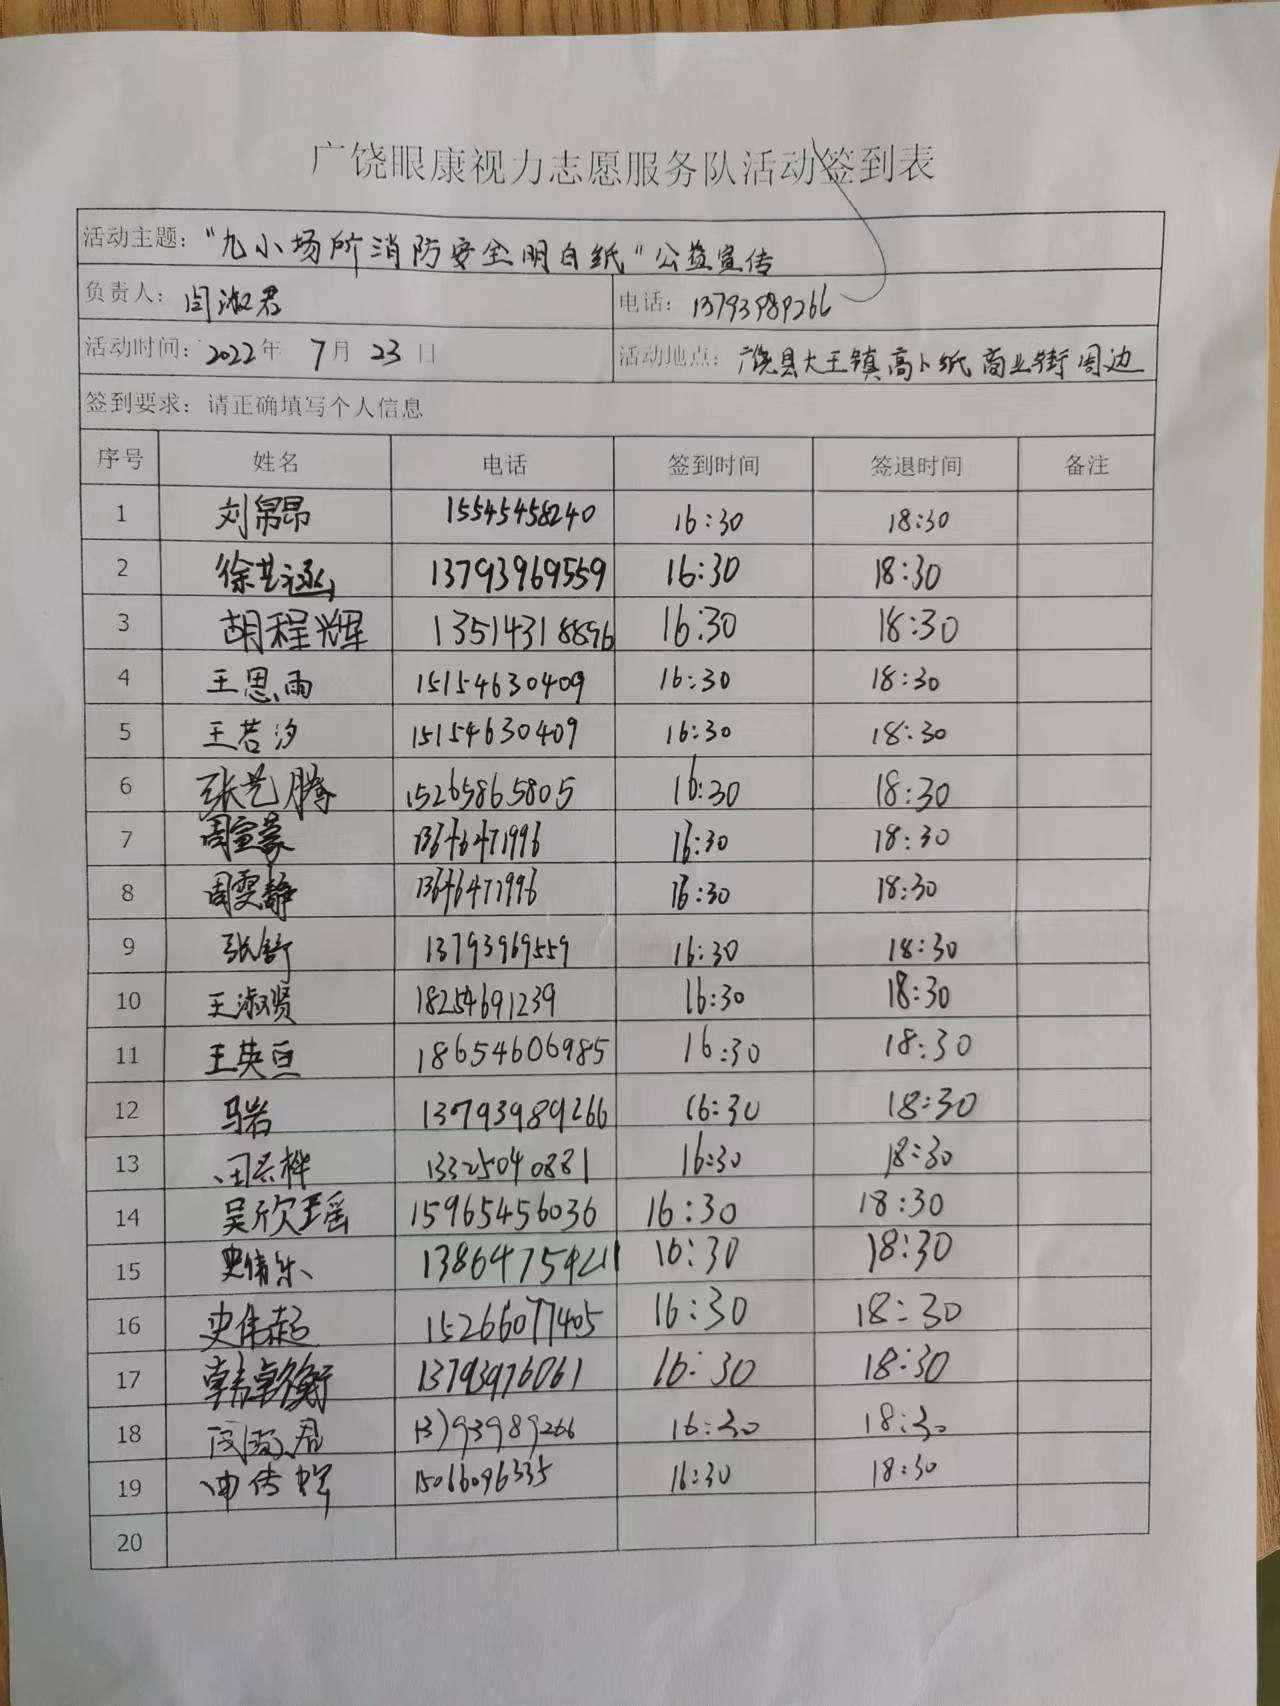 广饶眼康视力志愿服务队活动签到表
活动主题：“九小场所消防安全明白纸”公益宣传
负责人：闫淑君 电话：13793989266
活动时间：2022年 7月 23日 活动地点：广饶县大王镇高卜纸商业街周边
签到要求：请正确填写个人信息
序号 姓名 电话 签到时间 签退时间 备注
1 刘帛昂 15545458240 16:30 18:30
2 徐艺涵 13793969559 16:30 18:30
3 胡程辉 13514318896 16:30 18:30
4 王思雨 15154630409 16:30 18:30
5 王若汐 15154630409 16:30 18:30
6 张艺腾 15265865805 16:30 18:30
7 周宣蒙 13646471996 16:30 18:30
8 周雯静 13646471996 16:30 18:30
9 张舒 13793969559 16:30 18:30
10 王淑贤 18254691239 16:30 18:30
11 王英亘 18654606985 16:30 18:30
12 马岩 13793989266 16:30 18:30
13 13325040881 16:30 18:30
14 吴欣瑶 15965456036 16:30 18:30
15 史倩乐 16:30 18:30
16 史伟超 15266077405 16:30 18:30
17 韩卓衡 13793976061 16:30 18:30
18 闫淑君 13793989266 16:30 18:30
19 15066096335 16:30 18:30
20